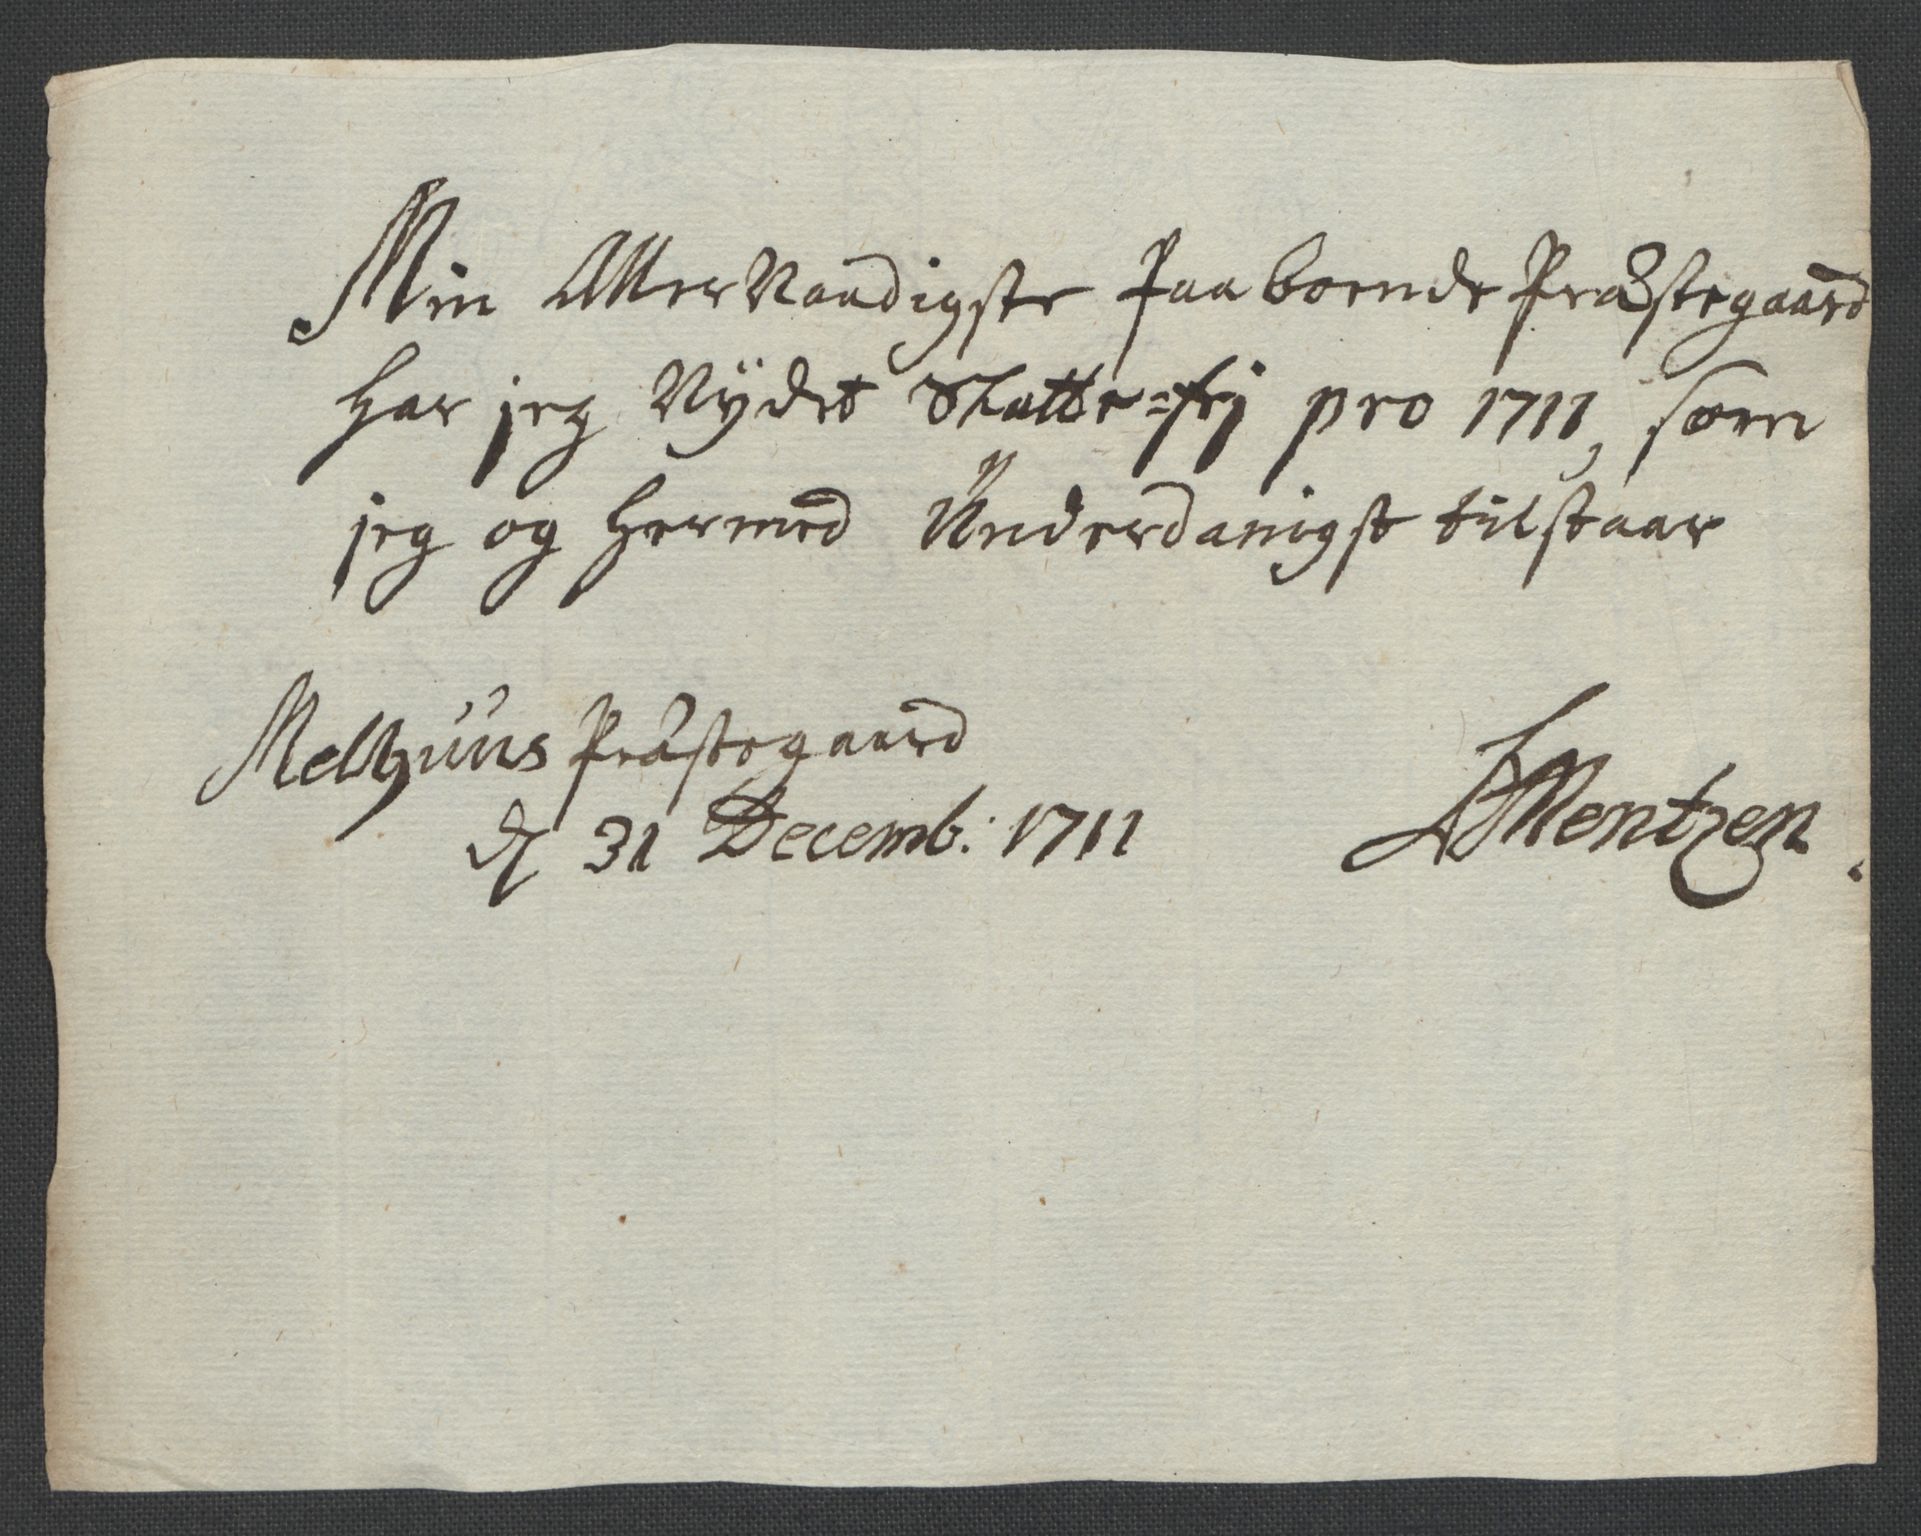 Min AllerNaadigste paaboende Præstegaard
har jeg Nÿdet Skatte-frj pro 1711, som
jeg og hermed Underdanigst tilstaar
Melhuus Præstegaard
d 31 Decemb: 1711
Mentzen